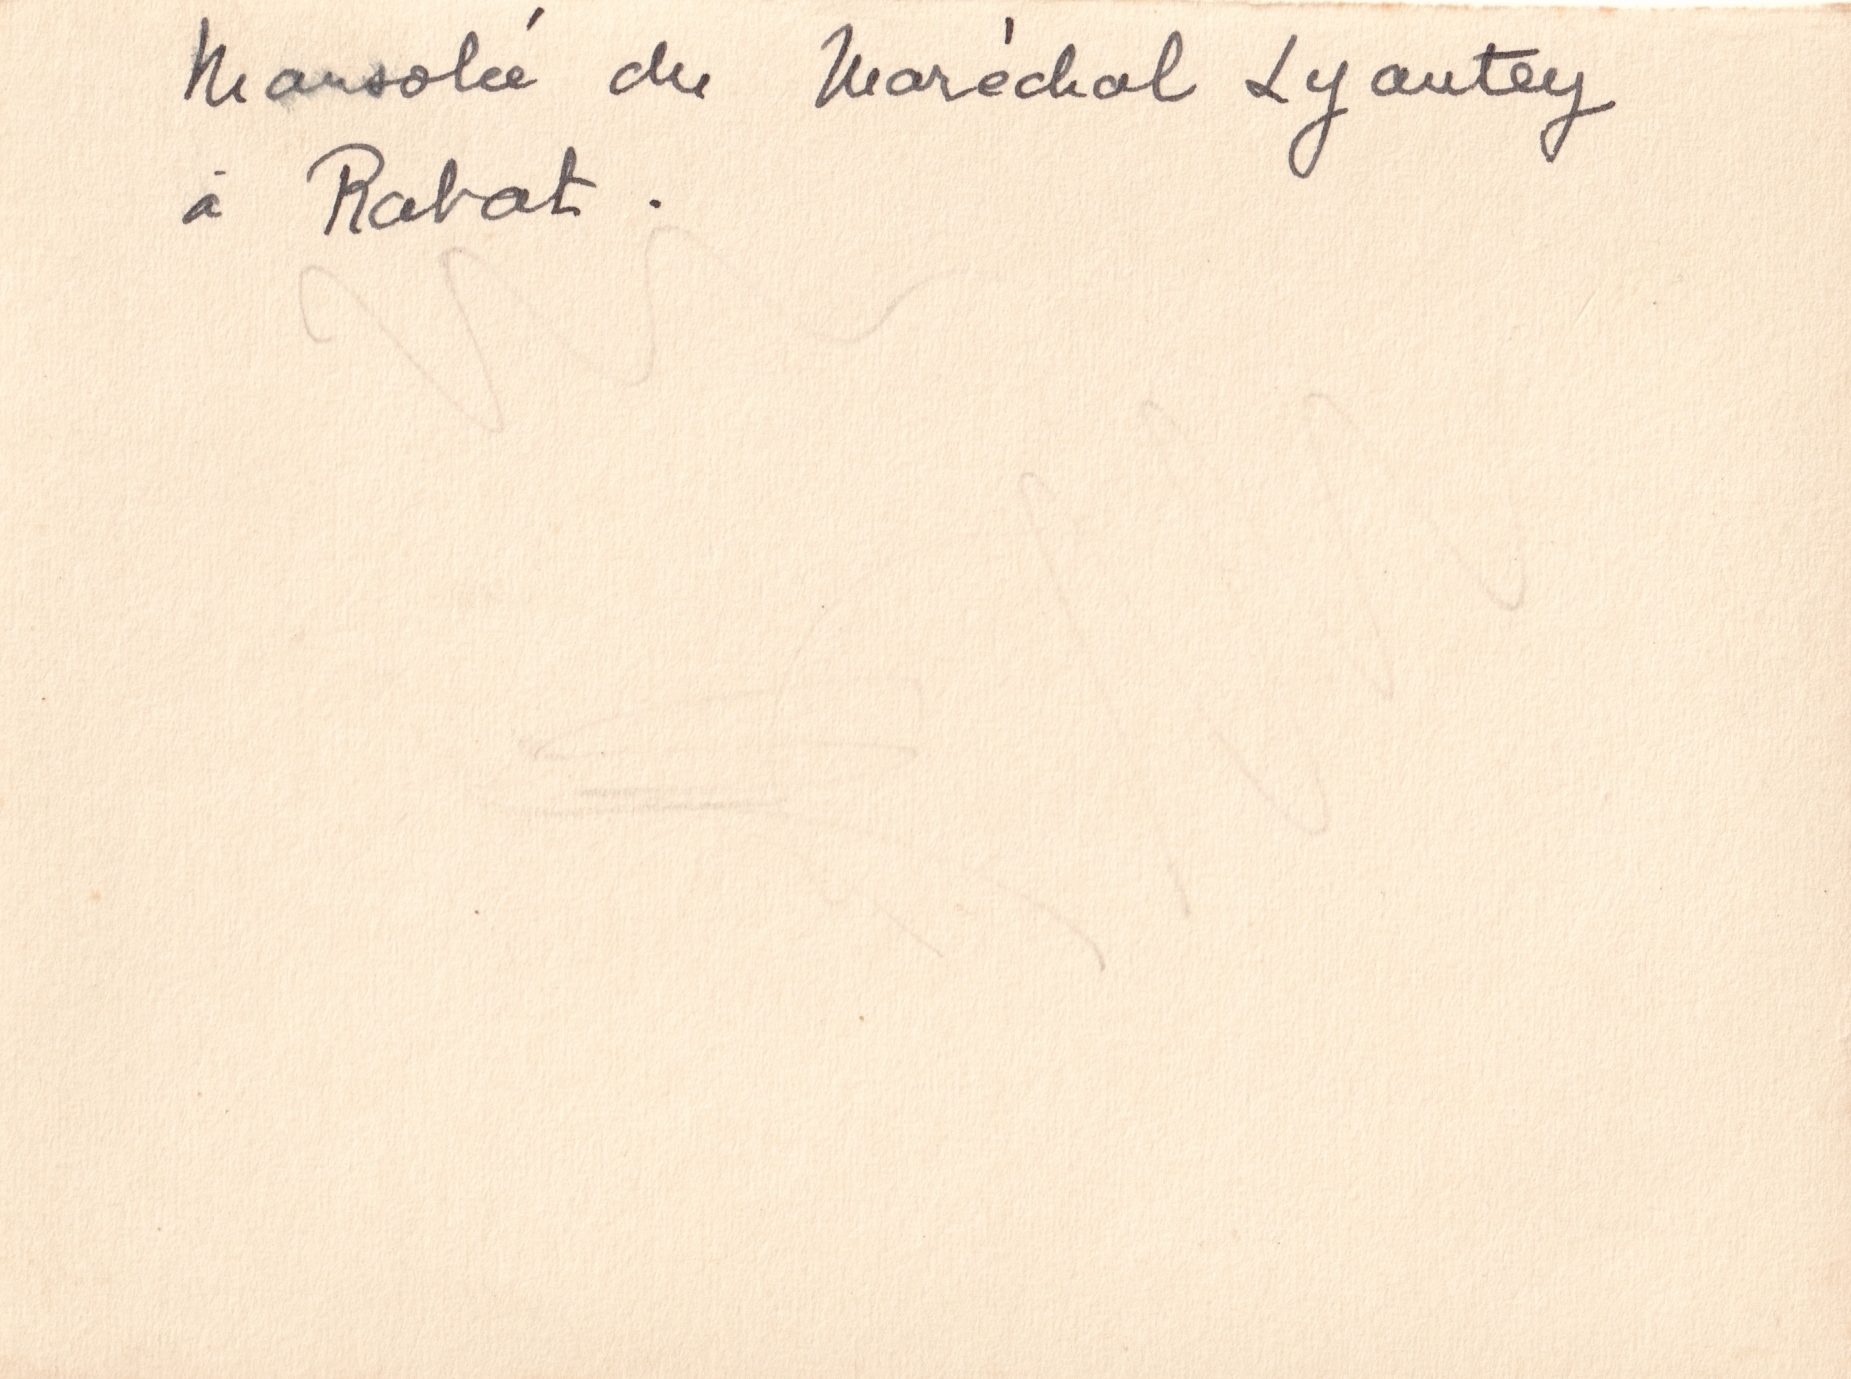 Mausolée du Maréchal Lyautey
à Rabat.